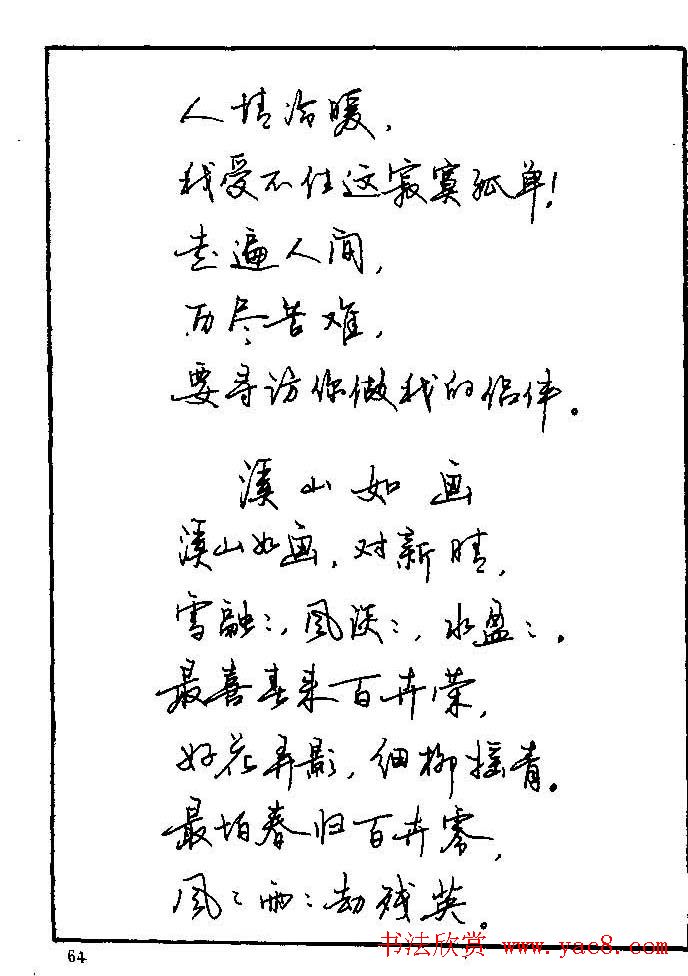 人情冷暖,
我受不住这寂寞孤单!
走遍人间,
历尽苦难,
要寻访你做我的侣伴。
溪山如画
溪山如画,对新晴,
雪融:,风淡:,水盈:。
最喜春来百卉荣,
好花弄影,细柳摇青。
最怕春归百卉零,
风:雨:劫残英。
64
书法欣赏 www.yac8.com